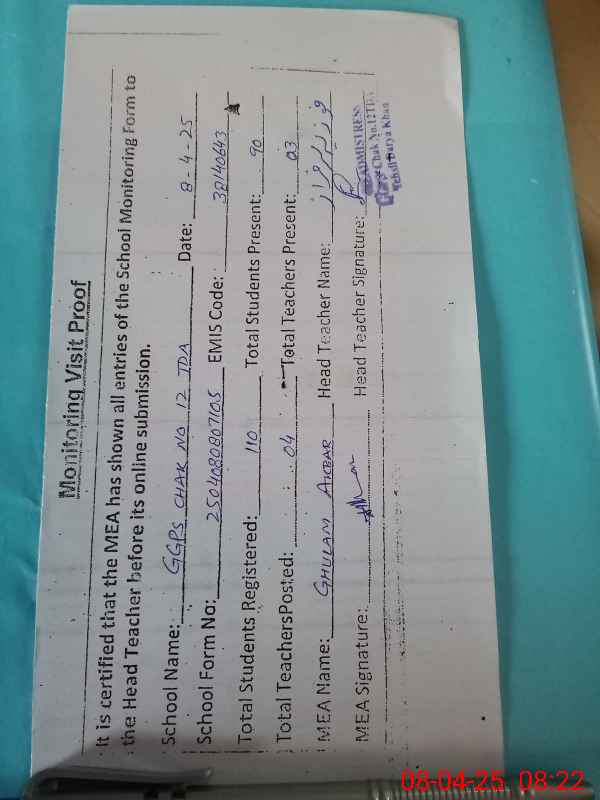 Monitoring Visit Proof
It is certified that the MEA has shown all entries of the School Monitoring Form to
the Head Teacher before its online submission.
School Name: GGPS CHAK NO 12 TDA Date: 8-4-25
School Form No: 2504080807105 EMIS Code: 38140643
Total Students Registered: 110 Total Students Present: 90
Total Teachers Posted: 04 Total Teachers Present: 03
MEA Name: GHULAM AKBAR Head Teacher Name:
MEA Signature: Head Teacher Signature:
Chak No.12TDA
Tehsil Darya Khan
08-04-25 08:22